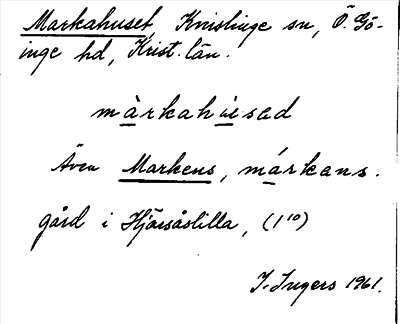 Markahuset, Knislinge sn, Ö. Gö-
inge hd, Krist. län.
màrkahùsad
Även Markens, márkans.
gård i Hjärsåslilla, (1¹⁰)
I. Ingers 1961.